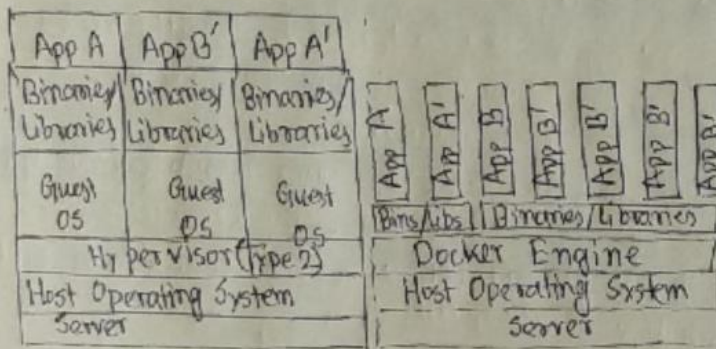 App A App B' App A'
Binaries/ Binaries/ Binaries/
Libraries Libraries Libraries
Guest Guest Guest
OS OS OS
Hypervisor (Type 2)
Host Operating System
Server
App A App A' App B App B' App B' App B'
Bins/Libs Binaries/Libraries
Docker Engine
Host Operating System
Server